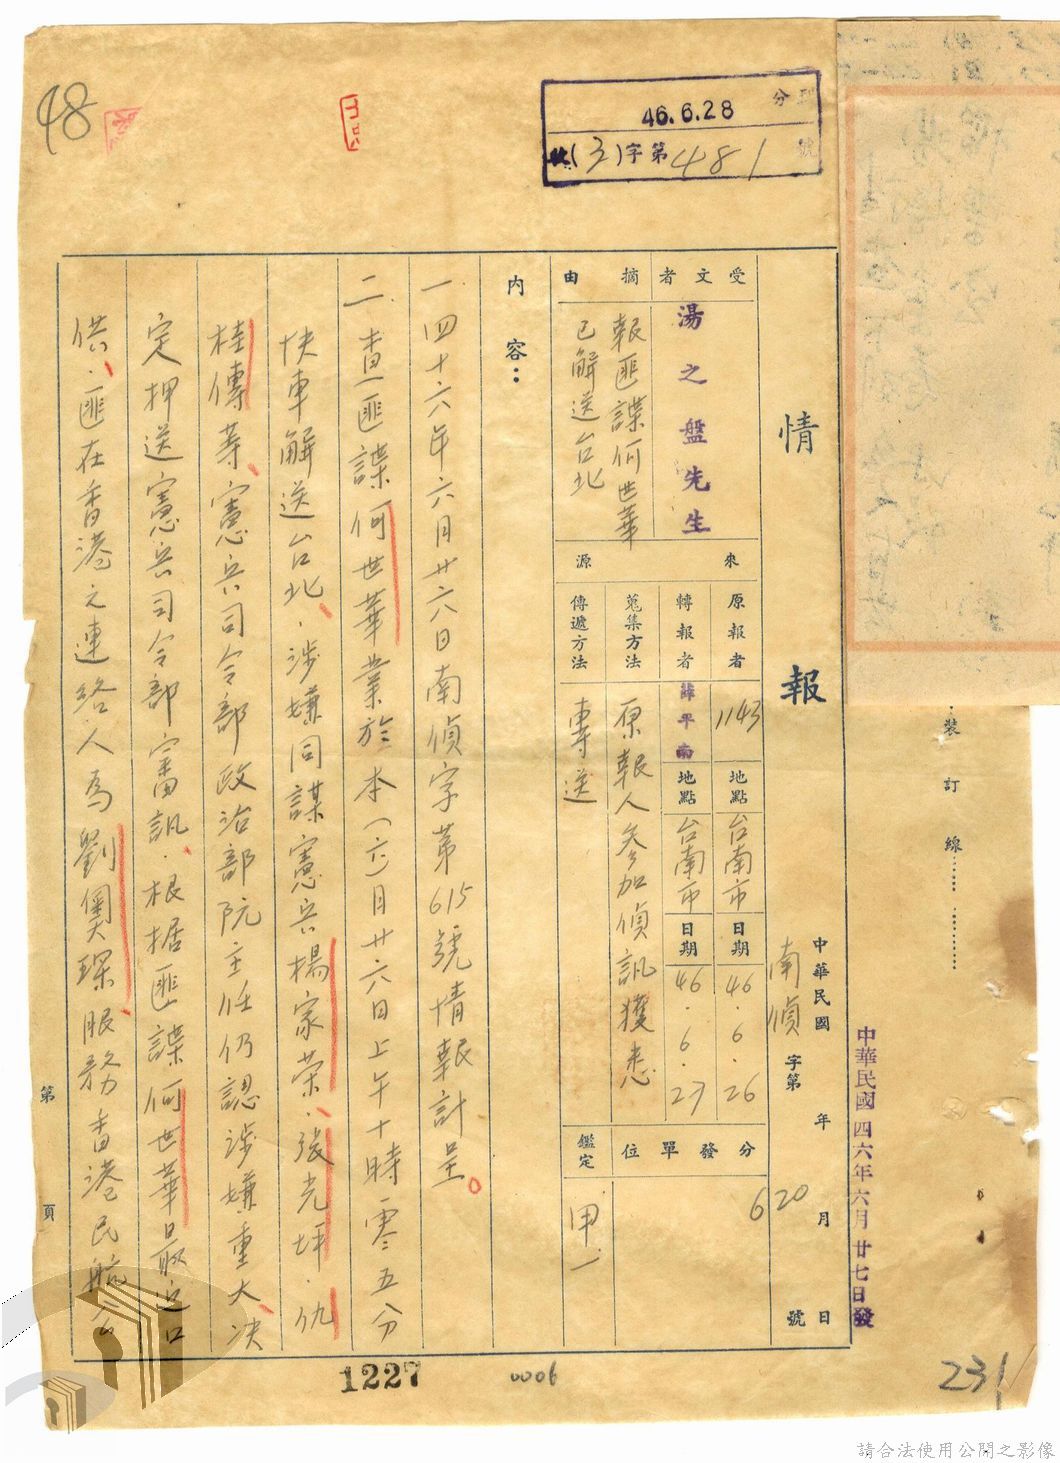 48
分
46.6.28
收(3)字第481號
裝訂線
中華民國四六年六月廿七日發
情報
中華民國 年 月 日
南偵字第 620 號
受文者
湯之盤先生
摘由
報匪諜何世華
已解送台北
來源
原報者
1143
地點
台南市
日期
46.6.26
轉報者
薛平南
地點
台南市
日期
46.6.27
蒐集方法
原報人參加偵訊獲悉
傳遞方法
專送
分發單位
6
鑑定
甲一
內容：
一.四十六年六月廿六日南偵字第615號情報計呈。
二.查匪諜何世華業於本(六)月廿六日上午十時零五分
快車解送台北、涉嫌同謀憲兵楊家荣、張光坪、仇
桂傳等、憲兵司令部政治部阮主任仍認涉嫌重大、决
定押送憲兵司令部審訊、根据匪諜何世華最近口
供、匪在香港之連絡人為劉奧琛、服務香港民航公
第 頁
1227
0006
231
請合法使用公開之影像